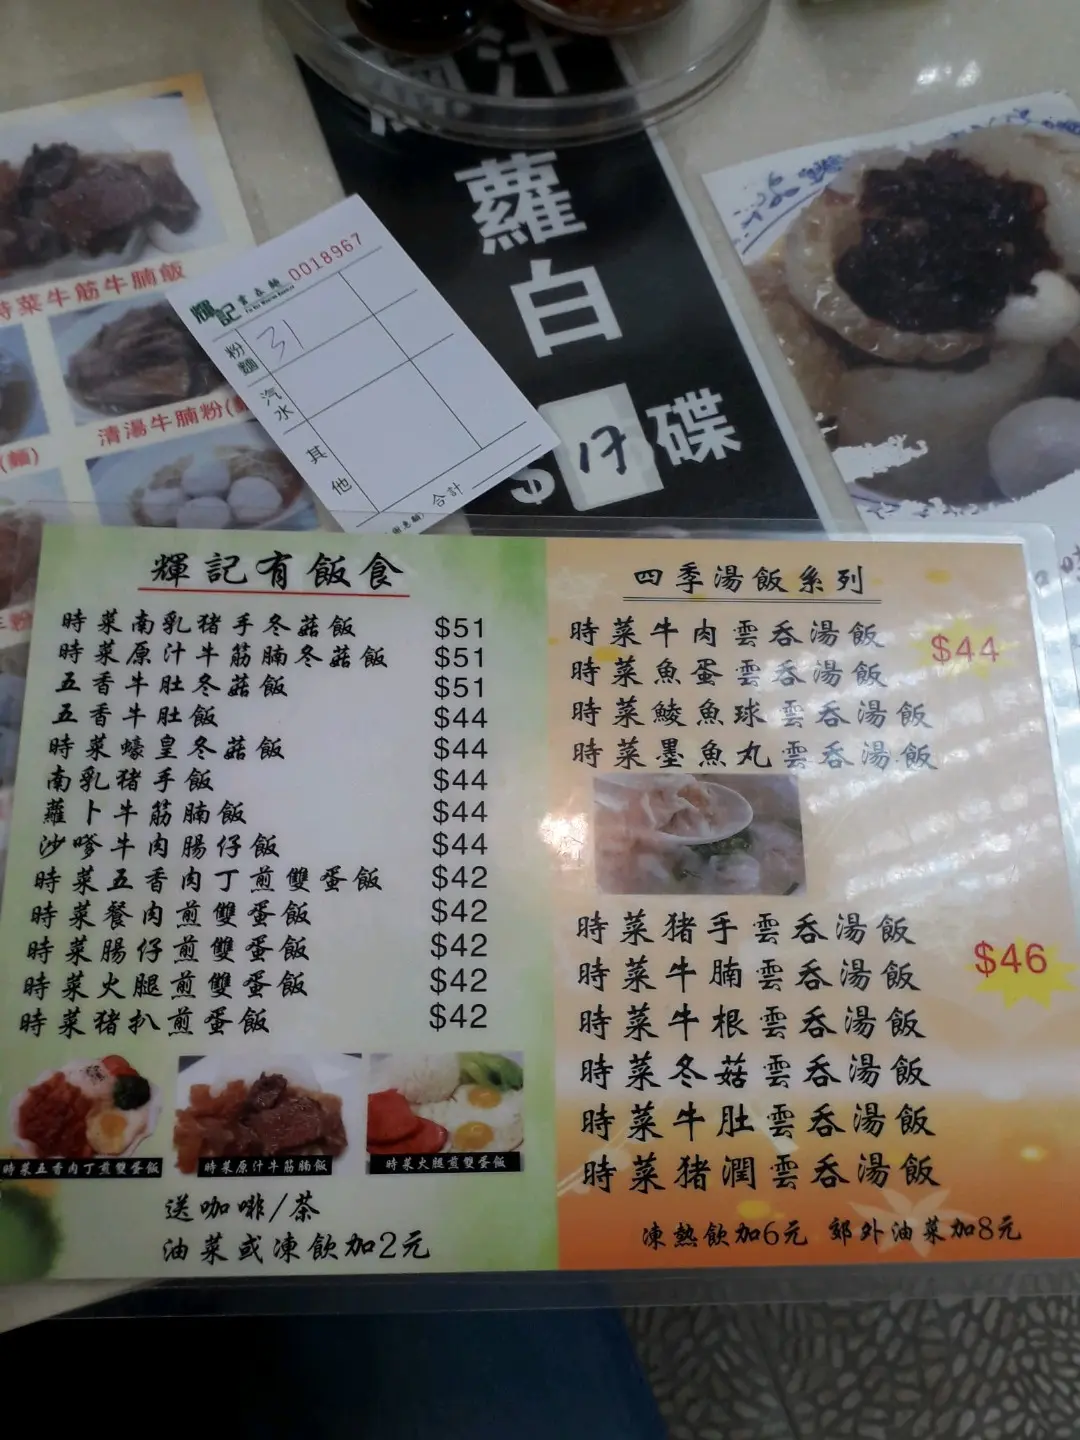 汁
蘿
白
$17碟
時菜牛筋牛腩飯
清湯牛腩粉(
(麵)
0018967
輝記
粉麵
31
汽水
其他
合計
輝記有飯食
時菜南乳猪手冬菇飯 $51
時菜原汁牛筋腩冬菇飯 $51
五香牛肚冬菇飯 $51
五香牛肚飯 $44
時菜蠔皇冬菇飯 $44
南乳猪手飯 $44
蘿卜牛筋腩飯 $44
沙嗲牛肉腸仔飯 $44
時菜五香肉丁煎雙蛋飯 $42
時菜餐肉煎雙蛋飯 $42
時菜腸仔煎雙蛋飯 $42
時菜火腿煎雙蛋飯 $42
時菜猪扒煎蛋飯 $42
時菜五香肉丁煎雙蛋飯
時菜原汁牛筋腩飯
時菜火腿煎雙蛋飯
送咖啡/茶
油菜或凍飲加2元
四季湯飯系列
時菜牛肉雲吞湯飯 $44
時菜魚蛋雲吞湯飯
時菜鯪魚球雲吞湯飯
時菜墨魚丸雲吞湯飯
時菜猪手雲吞湯飯
$46
時菜牛腩雲吞湯飯
時菜牛根雲吞湯飯
時菜冬菇雲吞湯飯
時菜牛肚雲吞湯飯
時菜猪潤雲吞湯飯
凍熱飲加6元 郊外油菜加8元